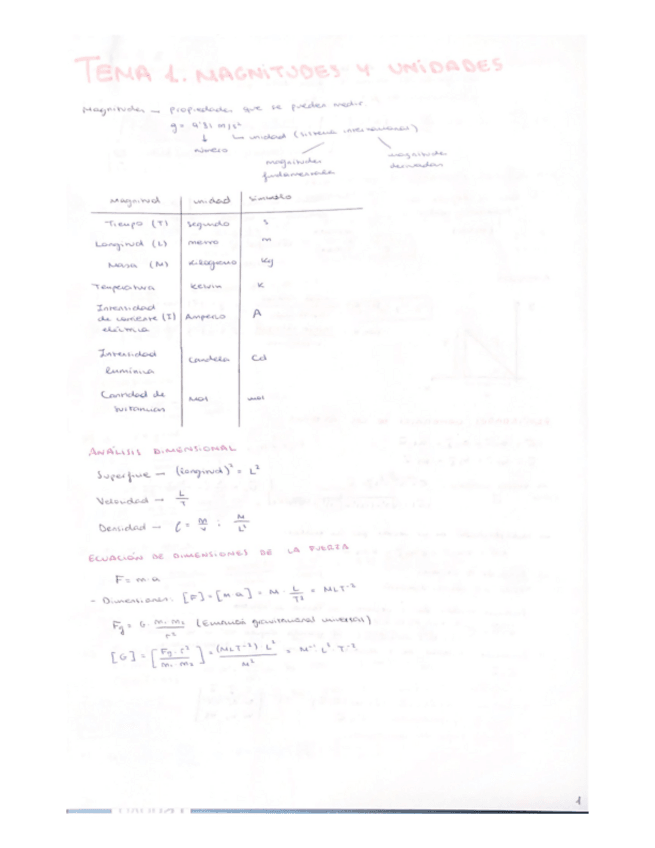 TEMA 1. MAGNITUDES Y UNIDADES
Magnitudes → propiedades que se pueden medir.
g = 9'81 m/s²
↓ ↳ unidad (sistema internacional)
número
magnitudes fundamentales
magnitudes derivadas
Magnitud unidad Símbolo
Tiempo (T) segundo s
Longitud (L) metro m
Masa (M) kilogramo Kg
Temperatura Kelvin K
Intensidad de corriente (I) eléctrica Amperio A
Intensidad lumínica Candela Cd
Cantidad de sustancia Mol mol
ANÁLISIS DIMENSIONAL
Superficie → (longitud)² = L²
Velocidad → L/T
Densidad → ρ = m/v ; M/L³
ECUACIÓN DE DIMENSIONES DE LA FUERZA
F = m·a
- Dimensiones: [F] = [m·a] = M · L/T² = MLT⁻²
Fg = G · m₁·m₂/r² (Ecuación gravitacional universal)
[G] = [Fg·r²/m₁·m₂] = (MLT⁻²)·L²/M² = M⁻¹ L³ T⁻²
1